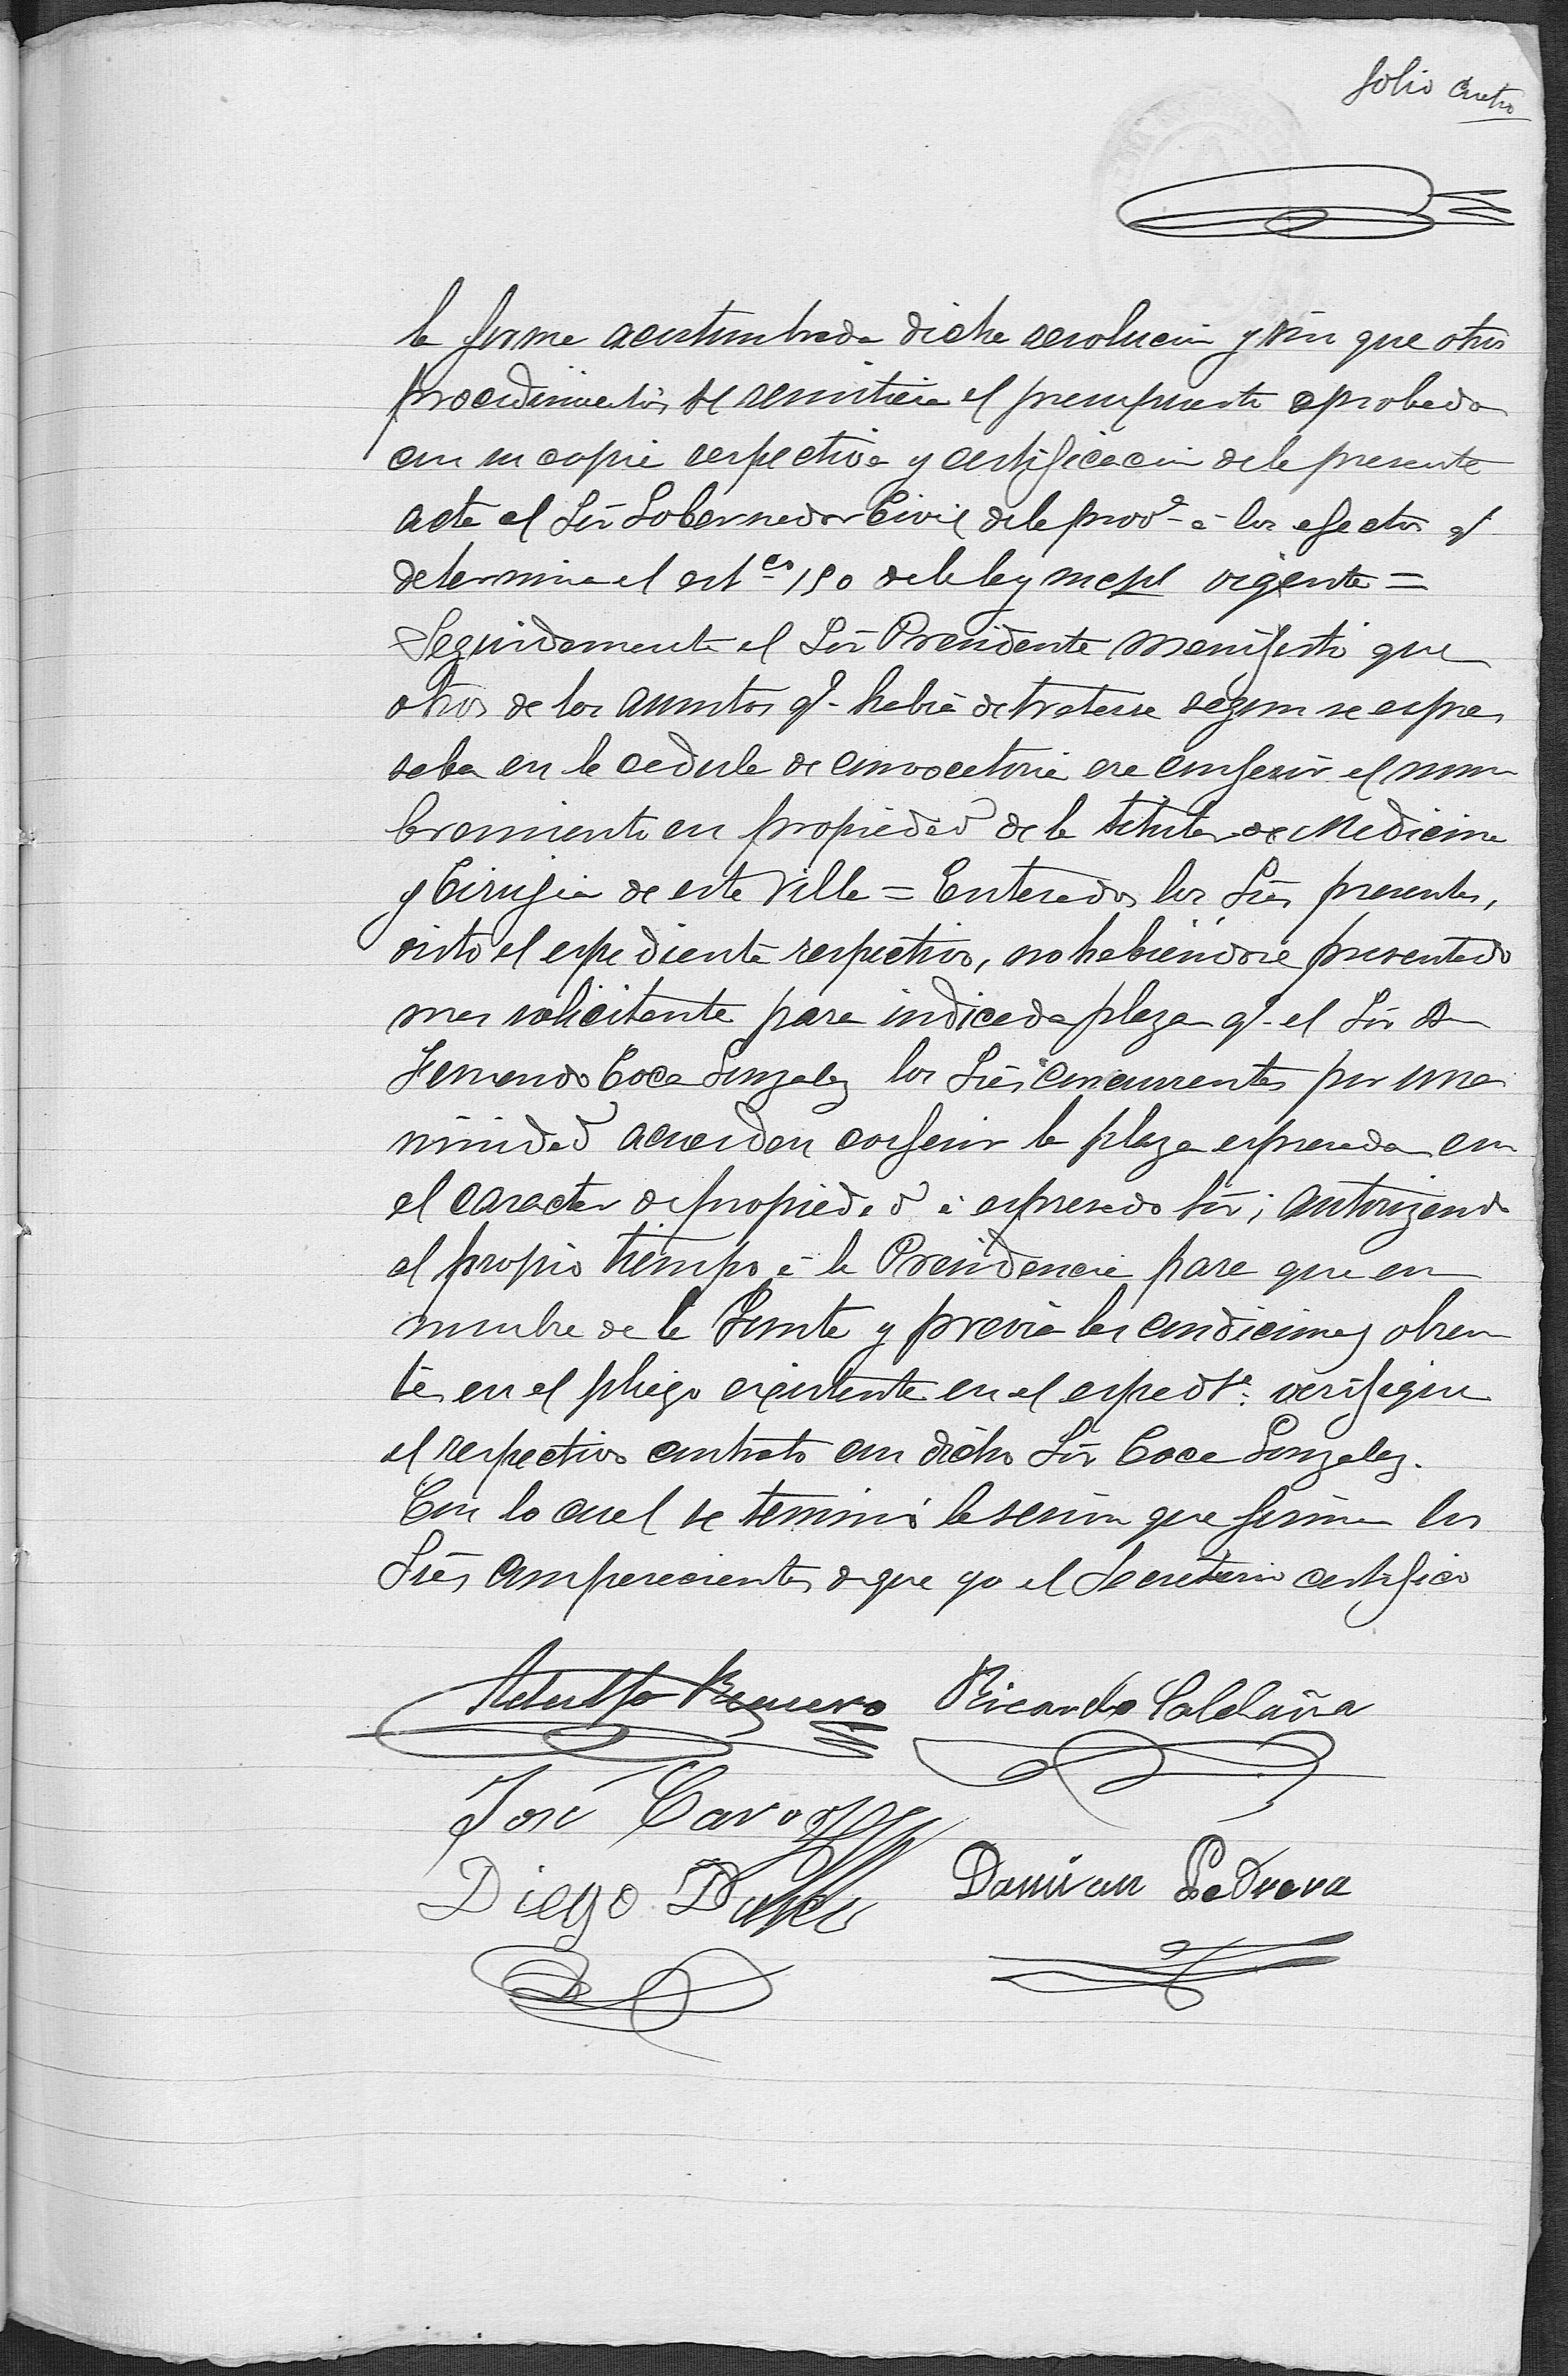 folio cuatro
la forma acostumbrada dicha resolucion y sin que otros
procedimientos se remitiera el presupuesto aprobado
con su copia respectiva y certificacion de la presente
acta al Sór Gobernador Civil de la provª á los efectos q̃
determina el artco 150 de la ley mcpl vigente =
Seguidamente el Sór Presidente manifestó que
otros de los asuntos q̃ habia de tratarse segun se espre
saba en la cedula de convocatoria era conferir el nom
bramiento en propiedad de la titular de Medicina
y Cirujia de esta Villa = Enterados los Sres presentes,
visto el espediente respectivo, no habiendose presentado
mas solicitante para indicada plaza q̃ el Sór Dn
Fernando Coca Gonzalez los Sres concurrentes por una
nimidad acuerdan conferir la plaza espresada con
el caracter de propiedad á espresado Sór; autorizando
al propio tiempo á la Presidencia para que en
nombre de la Junta y previa las condiciones obran
tes en el pliego existente en el espedte verifique
el respectivo contrato con dicho Sór Coca Gonzalez.
Con lo cual se terminó la sesion que firman los
Sres comparecientes de que yo el Secretario certifico
Adolfo Romero Ricardo Saldaña
José
Diego Damian Pedrera